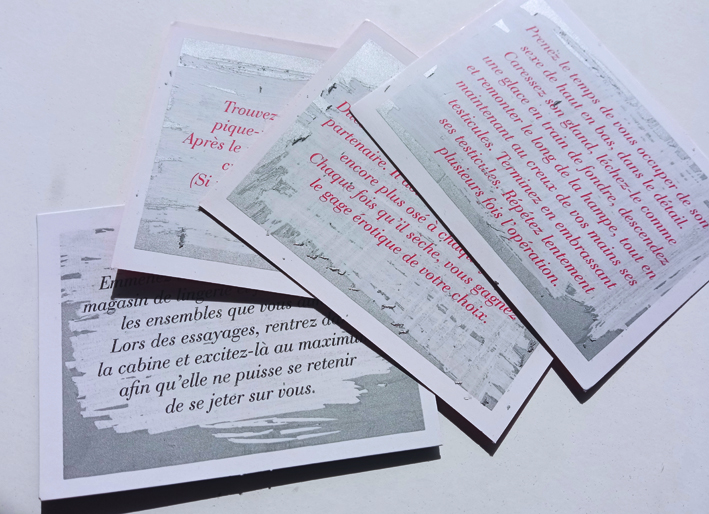 Trouvez
pique-
Après le
(Si
partenaire.
encore plus osé à
Chaque fois qu'il sèche, vous gagnez
le gage érotique de votre choix.
Prenez le temps de vous occuper de son
sexe de haut en bas, dans le détail.
Caressez son gland, léchez-le comme
une glace en train de fondre, descendez
et remonter le long de la hampe, tout en
maintenant au creux de vos mains ses
testicules. Terminez en embrassant
ses testicules. Répétez lentement
plusieurs fois l'opération.
magasin de lingerie
les ensembles que vous
Lors des essayages, rentrez
la cabine et excitez-là au
afin qu'elle ne puisse se retenir
de se jeter sur vous.